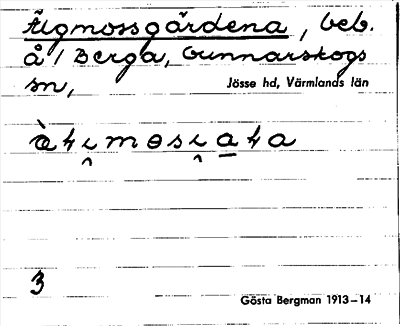 Älgmossgårdena, beb.
å / Berga, Gunnarskogs
sn,
Jösse hd, Värmlands län
3
Gösta Bergman 1913–14